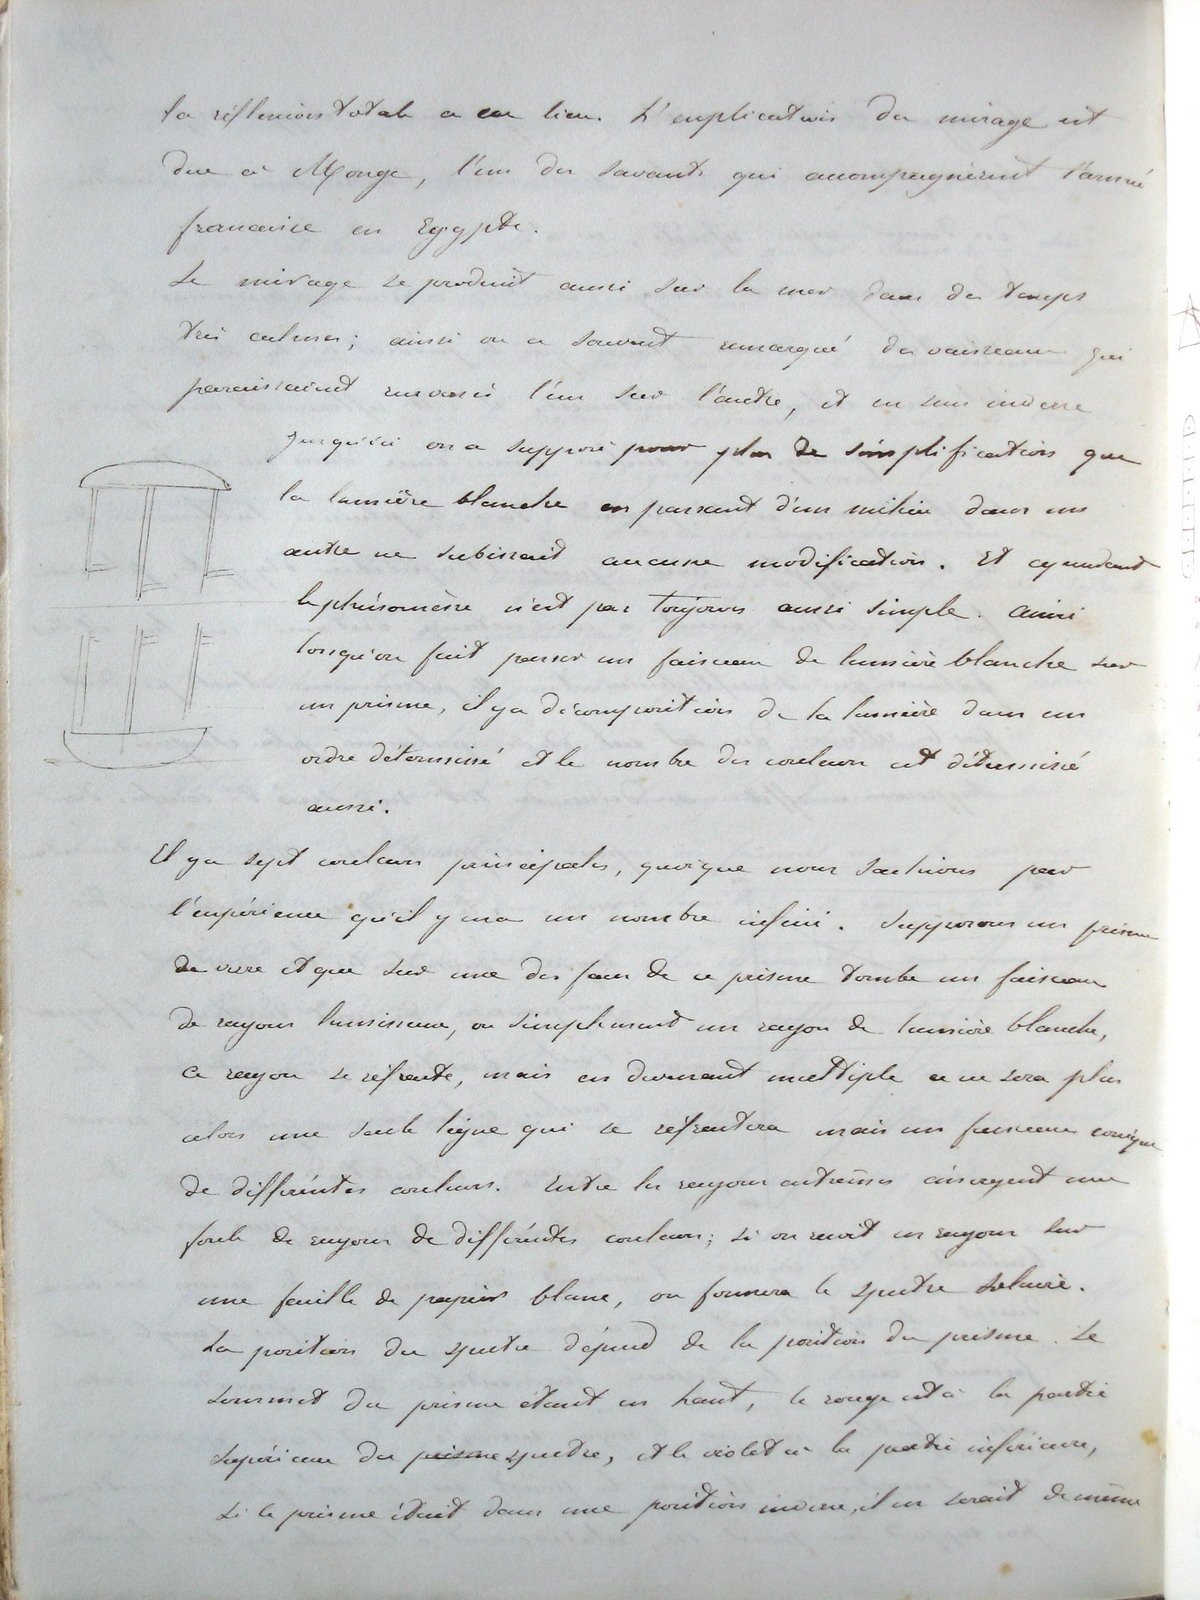 la réflexion totale a eu lieu. L'explication du mirage est
due à Monge, l'un des savants qui accompagnèrent l'armée
française en Egypte.
Le mirage se produit aussi sur la mer dans des temps
très calmes; ainsi on a souvent remarqué des vaisseaux qui
paraissaient renversés l'un sur l'autre, et en sens inverse
Jusqu'ici on a supposé pour plus de simplification que
la lumière blanche en passant d'un milieu dans un
autre ne subissait aucune modification. Et cependant
le phénomène n'est pas toujours aussi simple. Ainsi
lorsqu'on fait passer un faisceau de lumière blanche sur
un prisme, il y a décomposition de la lumière dans un
ordre déterminé et le nombre des couleurs est déterminé
aussi.
Il y a sept couleurs principales, quoique nous sachions par
l'expérience qu'il y en a un nombre infini. Supposons un prisme
de verre et que sur une des faces de ce prisme tombe un faisceau
de rayons lumineux, ou simplement un rayon de lumière blanche,
ce rayon se réfracte, mais en devenant multiple ce ne sera plus
alors une seule ligne qui se réfractera mais un faisceau conique
de différentes couleurs. Entre les rayons extrêmes émergent une
foule de rayons de différentes couleurs; si on reçoit ces rayons sur
une feuille de papier blanc, on formera le spectre solaire.
La position du spectre dépend de la position du prisme. Le
sommet du prisme étant en haut, le rouge est à la partie
supérieure du prisme spectre, et le violet à la partie inférieure,
Si le prisme était dans une position inverse, il en serait de même